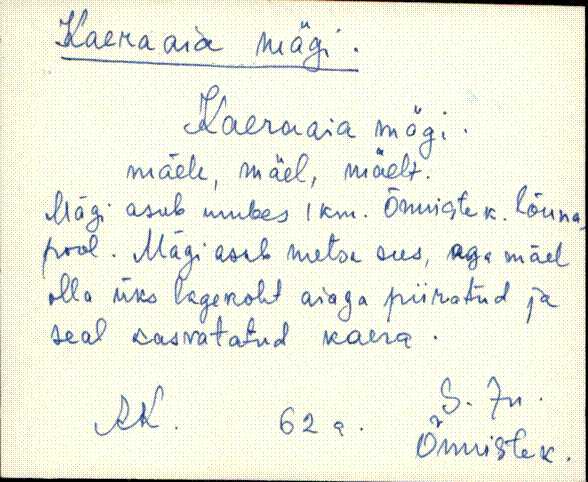 Kaeraaia mägi.
Kaeraaia mägi.
mäele, mäel, mäelt.
Mägi asub umbes 1 km. Õnnistek. lõuna-
pool. Mägi asub metsa sees, aga mäel
olla üks lagekoht aiaga piiratud ja
seal kasvatatud kaera.
RK. 62 a. S. In.
Õnnistek.